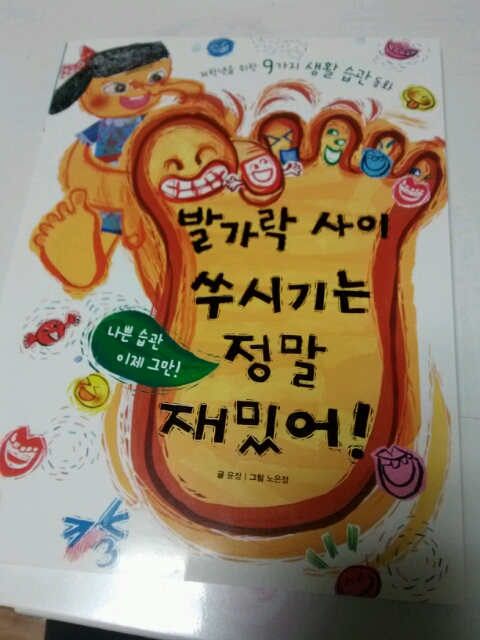 저학년을 위한 9가지 생활 습관 동화
발가락 사이
쑤시기는
정말
재밌어!
나쁜 습관
이제 그만!
글 윤정 | 그림 노은정